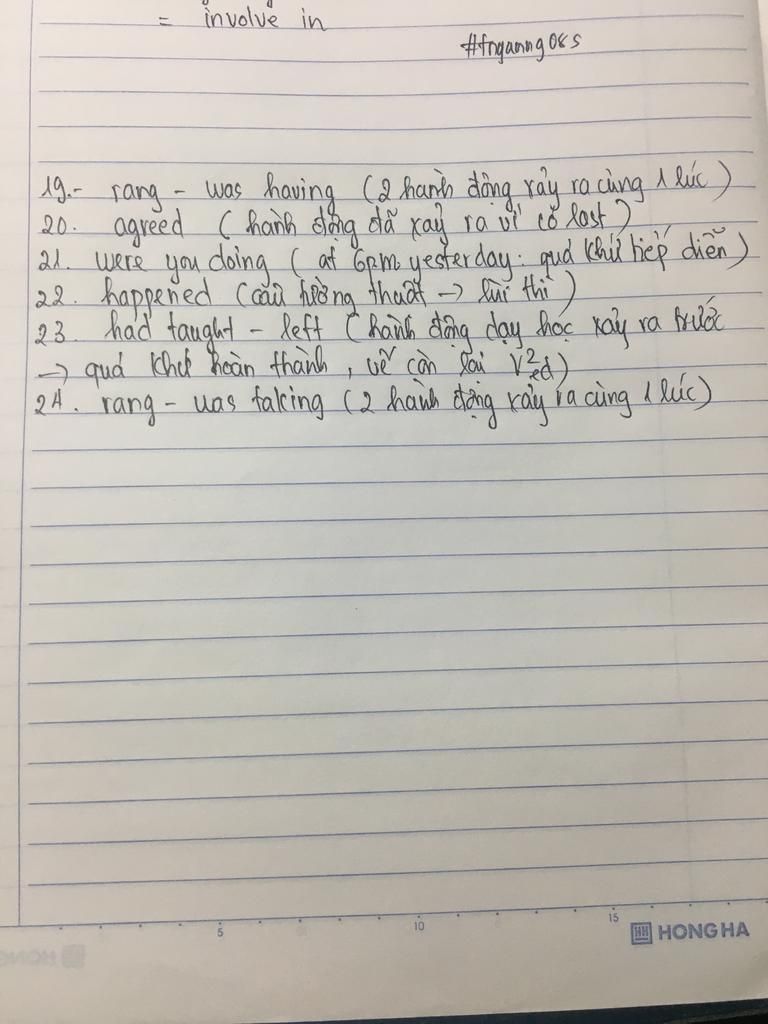 = involve in
#fnganng085
19.- rang - was having (2 hành động xảy ra cùng 1 lúc)
20. agreed (hành động đã xảy ra vì có last)
21. were you doing (at 6pm yesterday: quá khứ tiếp diễn)
22. happened (câu tường thuật → lùi thì)
23. had taught - left (hành động dạy học xảy ra trước
→ quá khứ hoàn thành, vế còn lại V2ed)
24. rang - was taking (2 hành động xảy ra cùng 1 lúc)
5 10 15
HH HONG HA